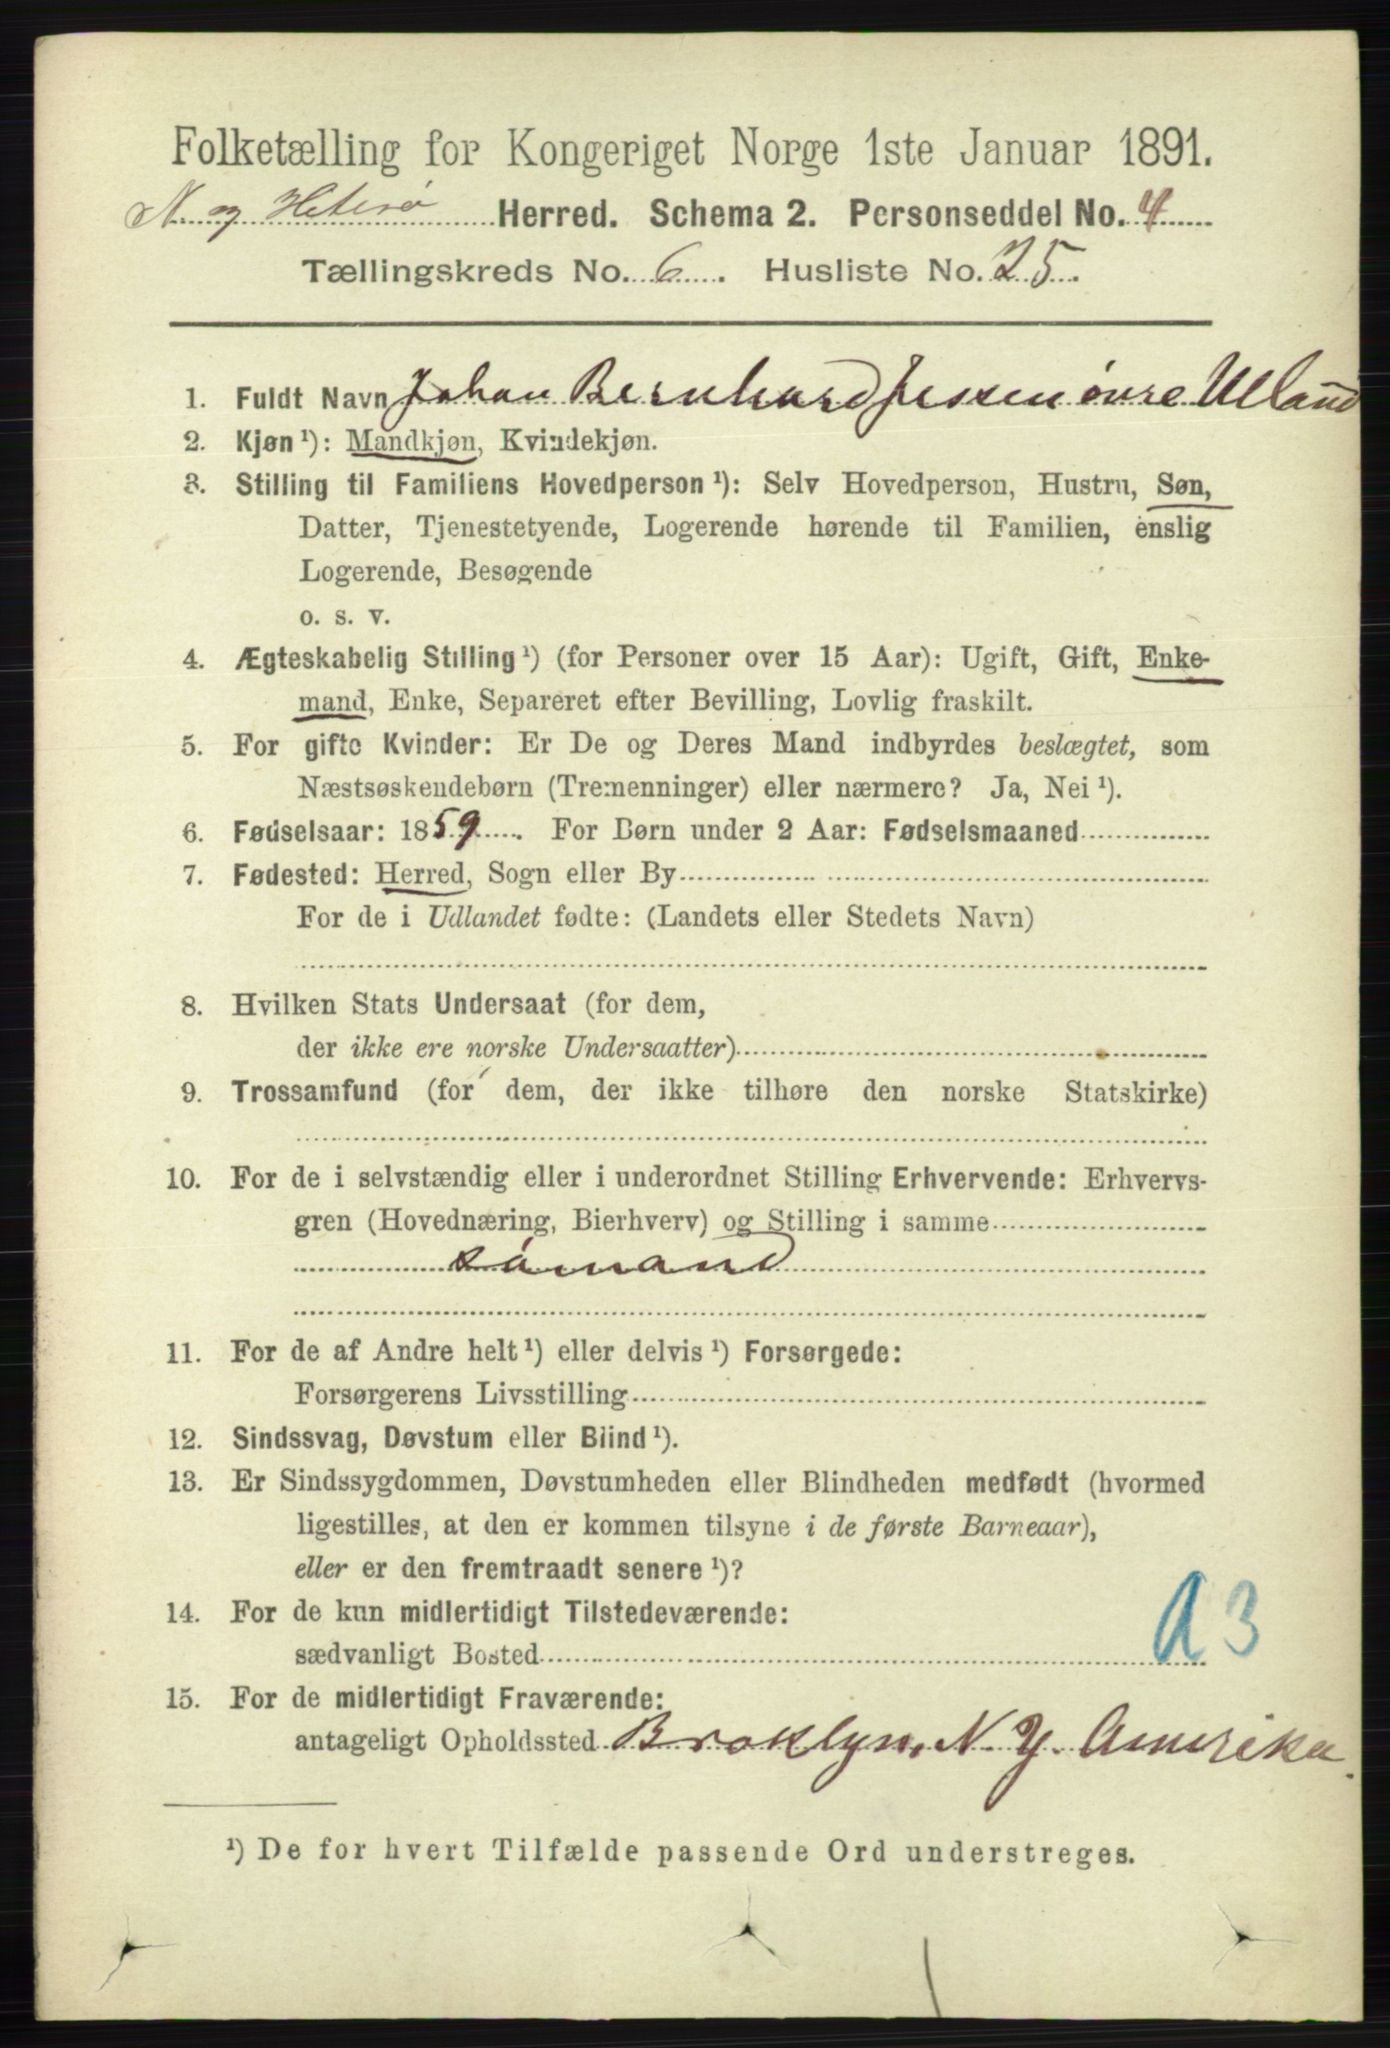 Folketælling for Kongeriget Norge 1ste Januar 1891.
N. og Hiterø Herred. Schema 2. Personseddel No. 4
Tællingskreds No. 6. Husliste No. 25.
1. Fuldt Navn Johan Bernhard Jessen øvre Ueland
2. Kjøn ¹): Mandkjøn, Kvindekjøn.
3. Stilling til Familiens Hovedperson ¹): Selv Hovedperson, Hustru, Søn,
Datter, Tjenestetyende, Logerende hørende til Familien, enslig
Logerende, Besøgende
o. s. v.
4. Ægteskabelig Stilling ¹) (for Personer over 15 Aar): Ugift, Gift, Enke-
mand, Enke, Separeret efter Bevilling, Lovlig fraskilt.
5. For gifte Kvinder: Er De og Deres Mand indbyrdes beslægtet, som
Næstsøskendebørn (Tremenninger) eller nærmere? Ja, Nei ¹).
6. Fødselsaar: 1859. For Børn under 2 Aar: Fødselsmaaned
7. Fødested: Herred, Sogn eller By
For de i Udlandet fødte: (Landets eller Stedets Navn)
8. Hvilken Stats Undersaat (for dem,
der ikke ere norske Undersaatter)
9. Trossamfund (for dem, der ikke tilhøre den norske Statskirke)
10. For de i selvstændig eller i underordnet Stilling Erhvervende: Erhvervs-
gren (Hovednæring, Bierhverv) og Stilling i samme
sømand
11. For de af Andre helt ¹) eller delvis ¹) Forsørgede:
Forsørgerens Livsstilling
12. Sindssvag, Døvstum eller Blind ¹).
13. Er Sindssygdommen, Døvstumheden eller Blindheden medfødt (hvormed
ligestilles, at den er kommen tilsyne i de første Barneaar),
eller er den fremtraadt senere ¹)?
14. For de kun midlertidigt Tilstedeværende:
sædvanligt Bosted
A 3
15. For de midlertidigt Fraværende:
antageligt Opholdssted Broklyn, N. Y. Amerika.
¹) De for hvert Tilfælde passende Ord understreges.